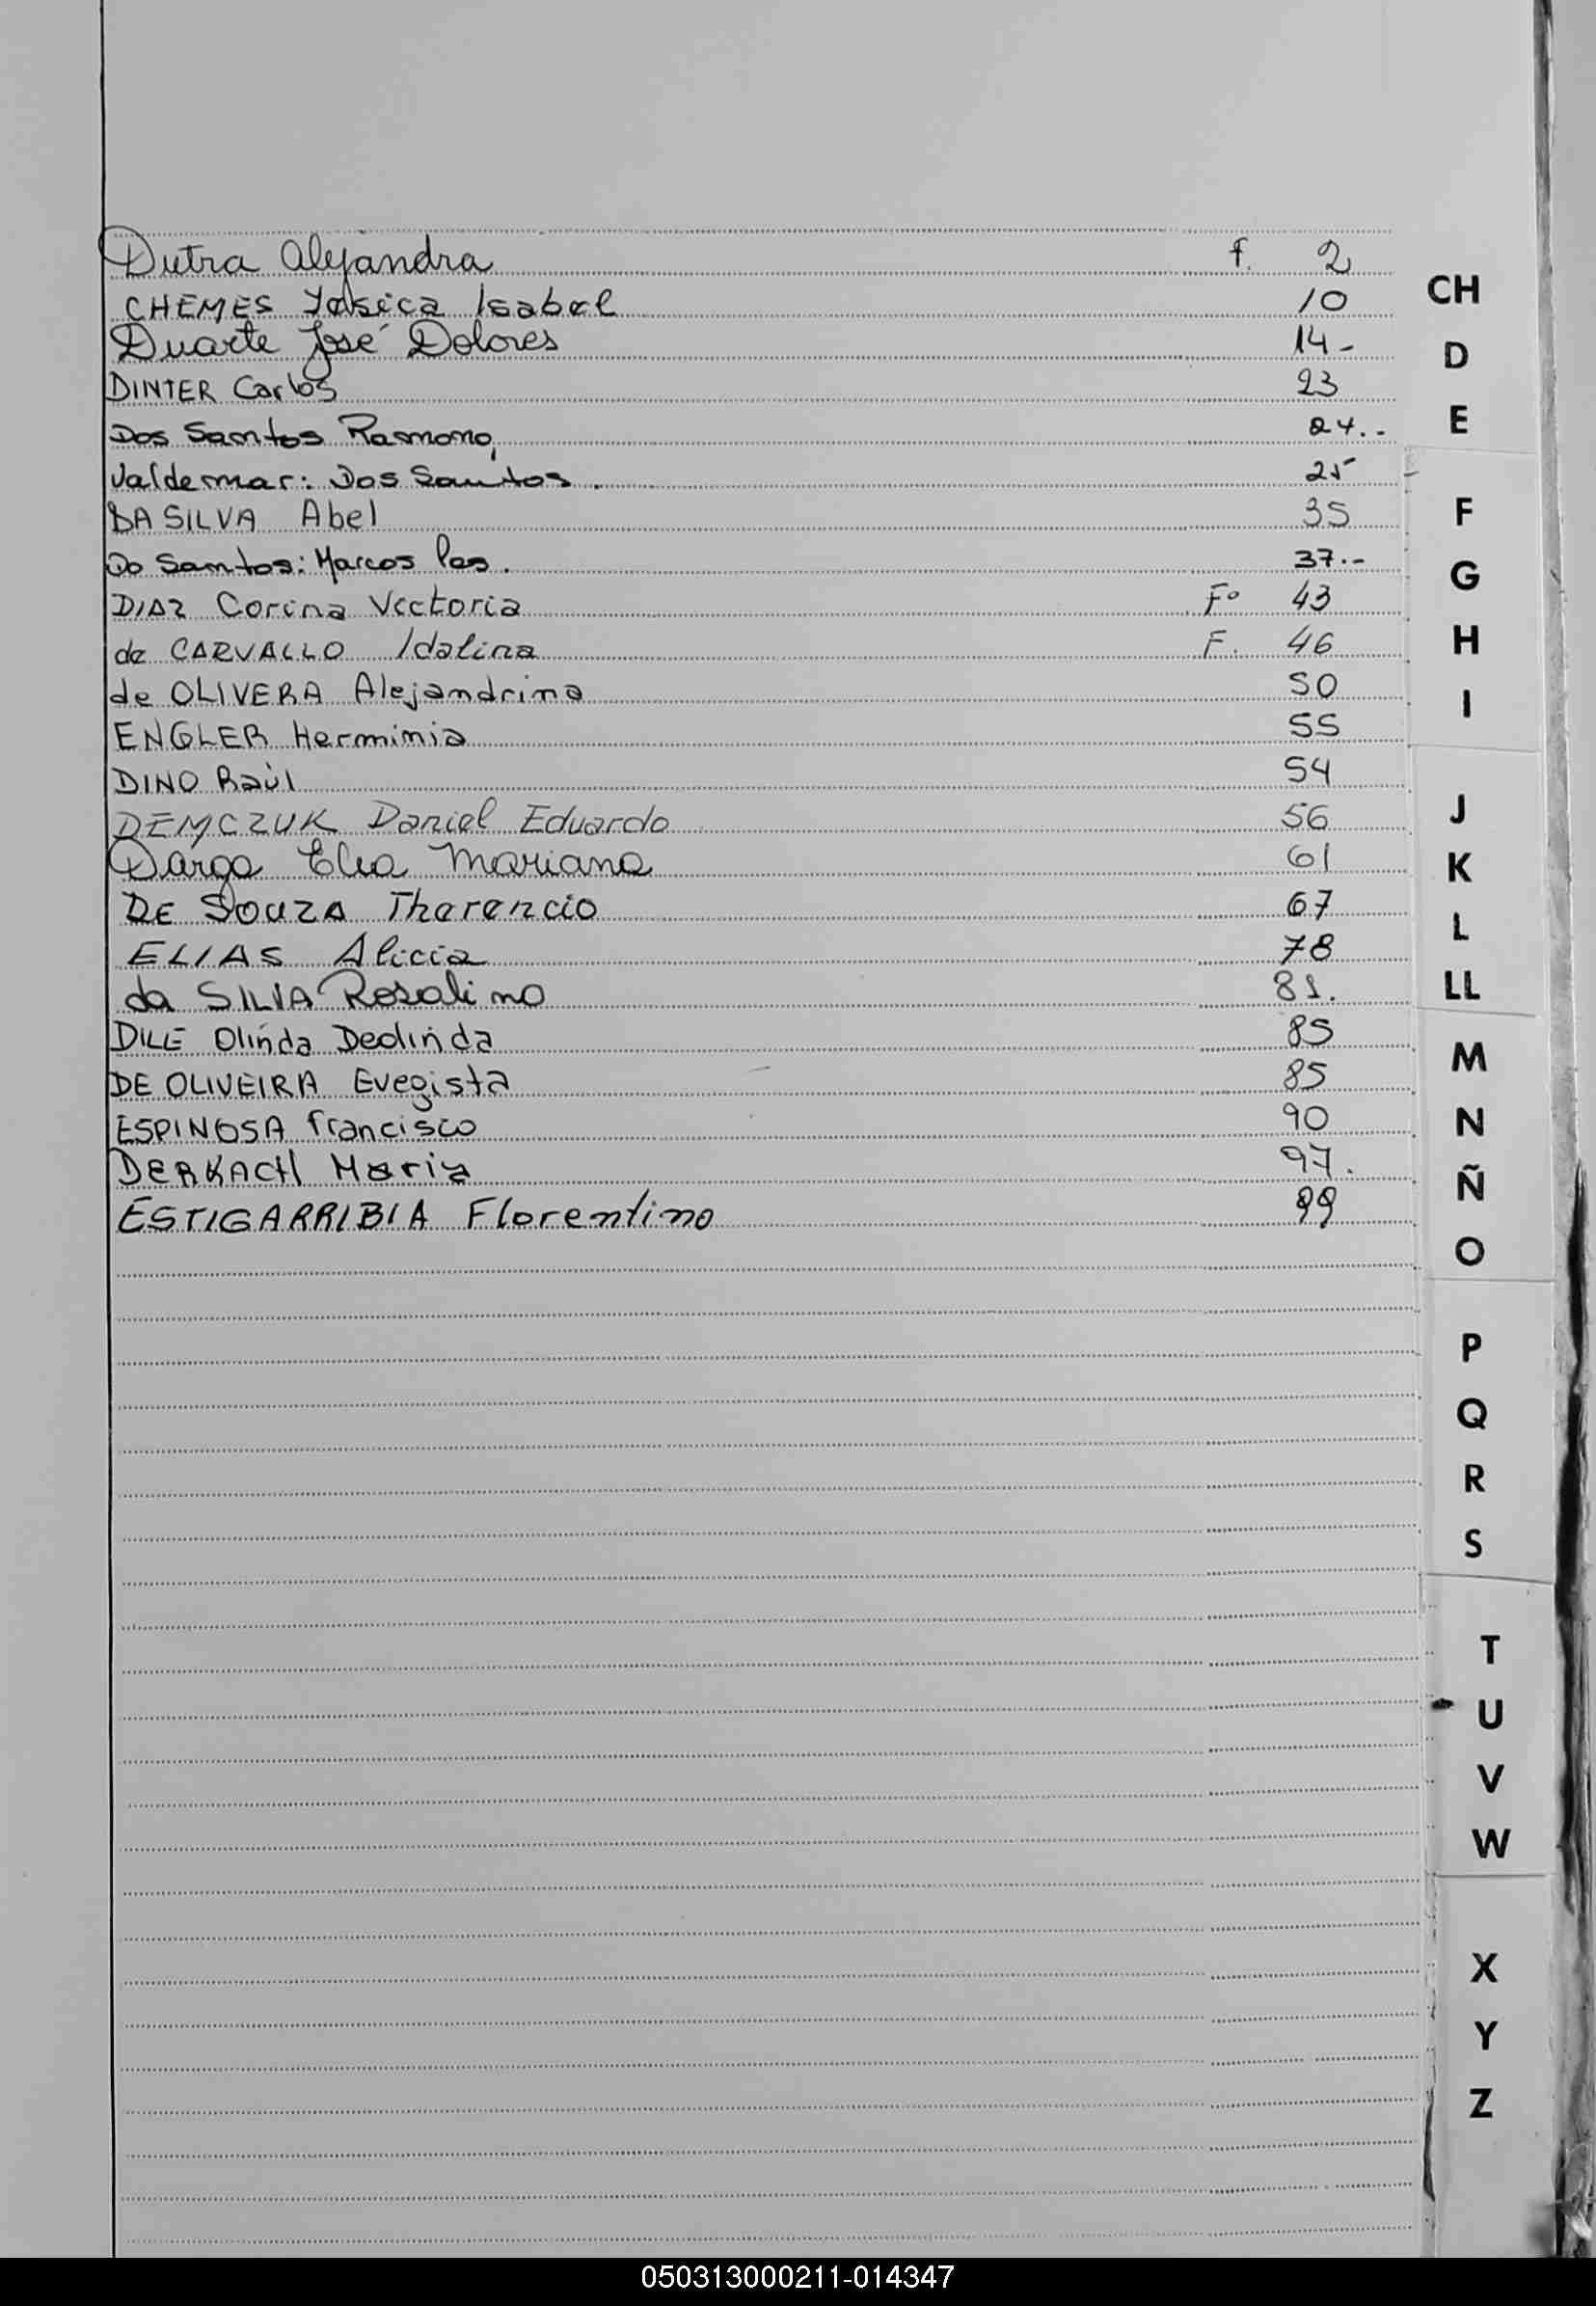 Dutra Alejandra f. 2
CHEMES Yesica Isabel 10
Duarte José Dolores 14-
DINTER Carlos 23
Dos Santos Ramono, 24.-
Valdemar: Dos Santos. 25
DA SILVA Abel 35
Do Santos: Marcos 37.-
DIAZ Corina Victoria Fº 43
de CARVALLO Idalina F. 46
de OLIVERA Alejandrina 50
ENGLER Herminia 55
DINO Raúl 54
DEMCZUK Daniel Eduardo 56
Dargo Elia Mariana 61
DE SOUZA Therencio 67
ELIAS Alicia 78
da SILVA Rosalino 81.
DILE Olinda Deolinda 85
DE OLIVEIRA Evegista 85
ESPINOSA francisco 90
DERKACH Maria 97.
ESTIGARRIBIA Florentino 99
CH
D
E
F
G
H
I
J
K
L
LL
M
N
Ñ
O
P
Q
R
S
T
U
V
W
X
Y
Z
050313000211-014347